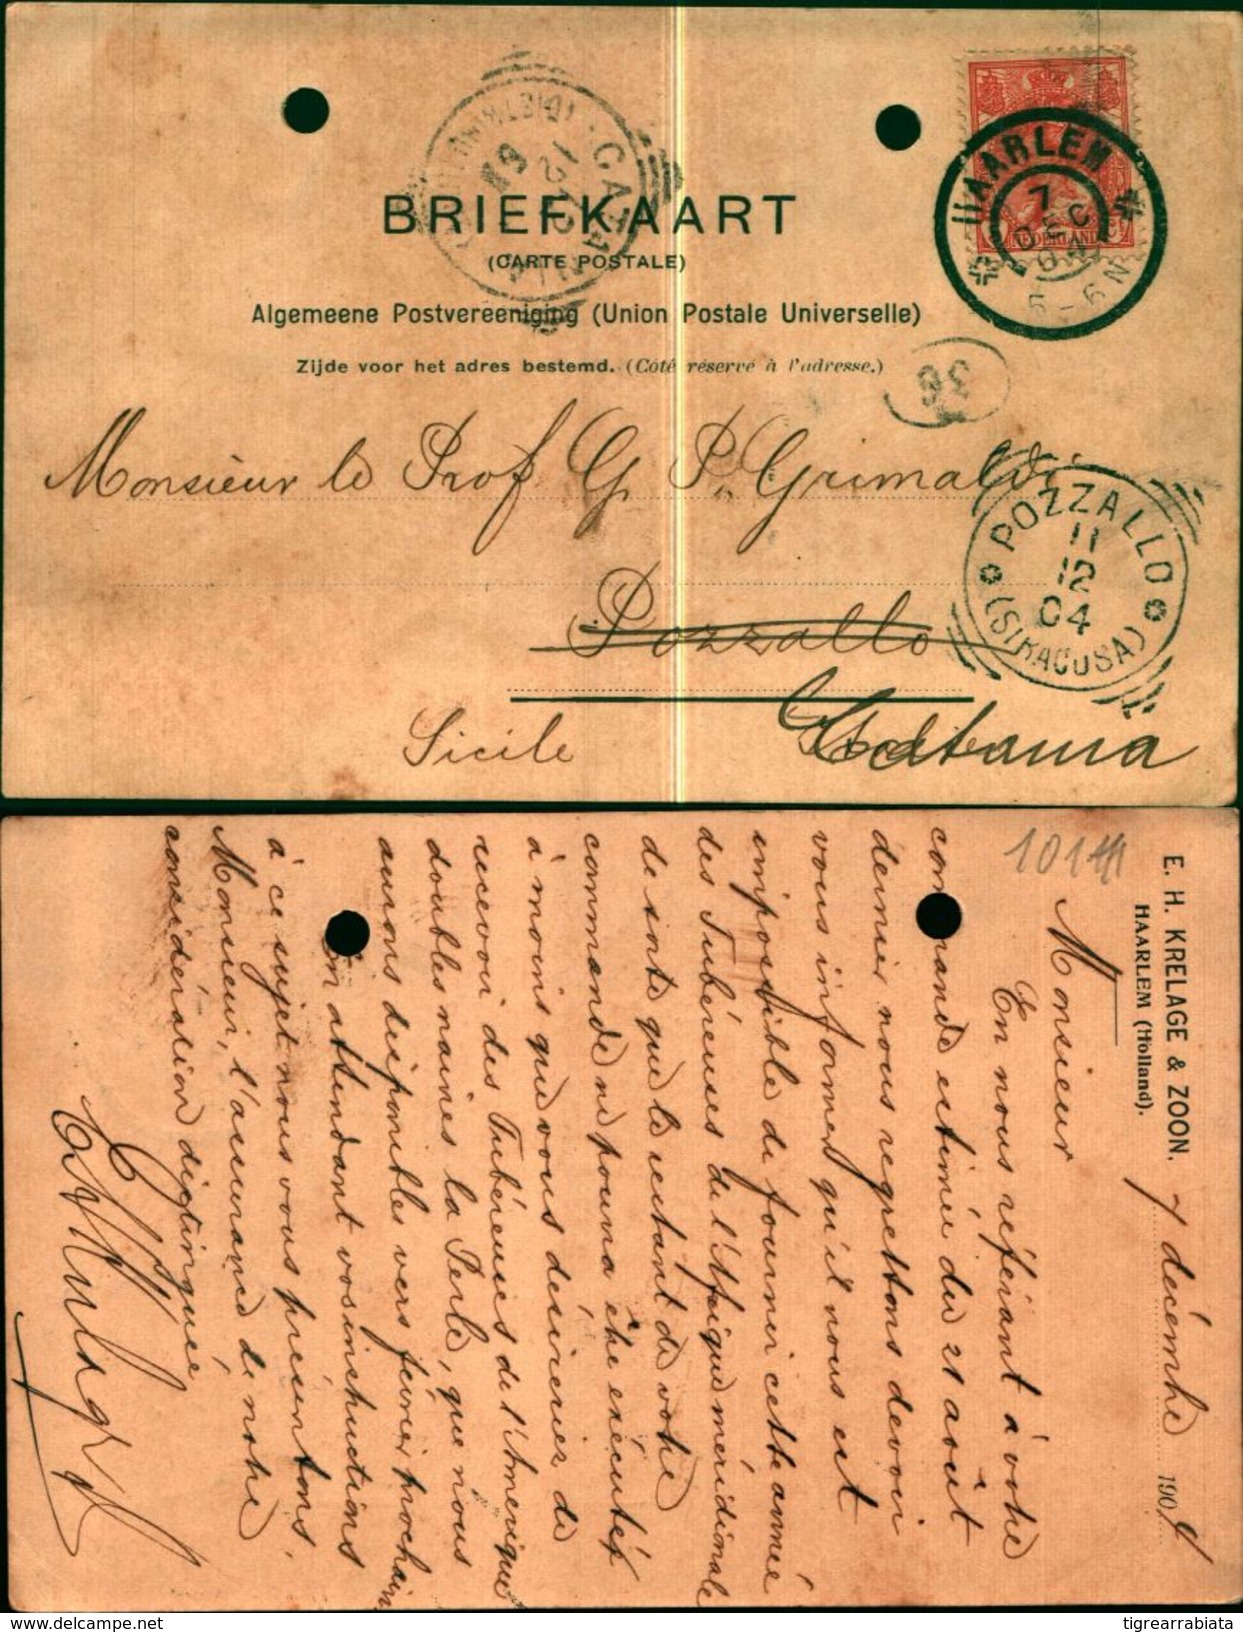 BRIEFKAART
(CARTE POSTALE)
Algemeene Postvereeniging (Union Postale Universelle)
Zijde voor het adres bestemd. (Côté réservé à l'adresse.)
HAARLEM
7
DEC
04
5-6N
NEDERLAND
36
Monsieur le Prof G. P. Grimaldi
POZZALLO
11
12
04
(SIRACUSA)
Pozzallo
Sicile
Catania
E. H. KRELAGE & ZOON.
HAARLEM (Holland).
7 décembre 1904
Monsieur
En nous référant à votre
commande estimée du 21 août
dernier nous regrettons devoir
vous informer qu'il nous est
impossible de fournir cette année
des Tubéreuses de l'Afrique méridionale
de sorte que le restant de votre
commande ne pourra être exécutée
à moins que vous désireriez de
recevoir des Tubéreuses de l'Amérique
doubles naines la Perle, que nous
aurons disponibles vers février prochain
En attendant vos instructions
à ce sujet nous vous présentons,
Monsieur, l'assurance de notre
considération distinguée
tigrearrabiata